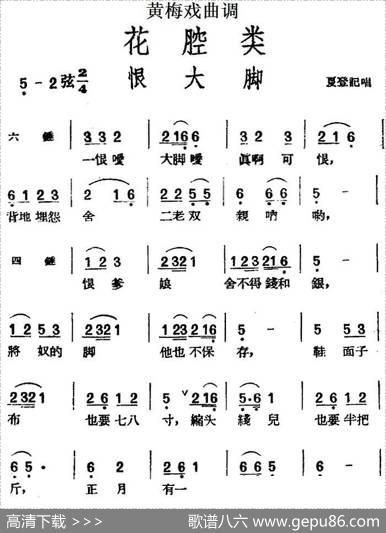 黄梅戏曲调
花腔类
5 - 2弦 2/4 恨大脚 夏登記唱
六錘 3 3 2 | 2 1 6 6 | 3 2 3 | 2 1 6 |
一恨嗳 大脚嗳 真啊可 恨,
6 1 2 3 | 2 1 6 | 2 2 5 5 | 6 6 6 | 5 - |
背地埋怨 舍 二老双 親吶 喲,
四錘 | 1 2 3 | 2 3 2 1 | 1 2 3 2 1 6 | 5 - |
恨爹 娘 舍不得錢和 銀,
1 2 5 3 | 2 3 2 1 | 1 2 3 2 1 6 | 5 - | 5 5 3 |
將奴的 脚 他也不保 存, 鞋面子
2 3 2 1 | 2 6 1 2 | 5 ∨ 2 1 6 | 5·6 1 | 2 6 1 2 |
布 也要七八 寸, 縧头 綫兒 也要半把
6 5· | 6 2 | 2 6 1 2 | 6 6 5 | 5 - |
斤, 正月 有一
高清下载 >>> 歌谱八六 www.gepu86.com